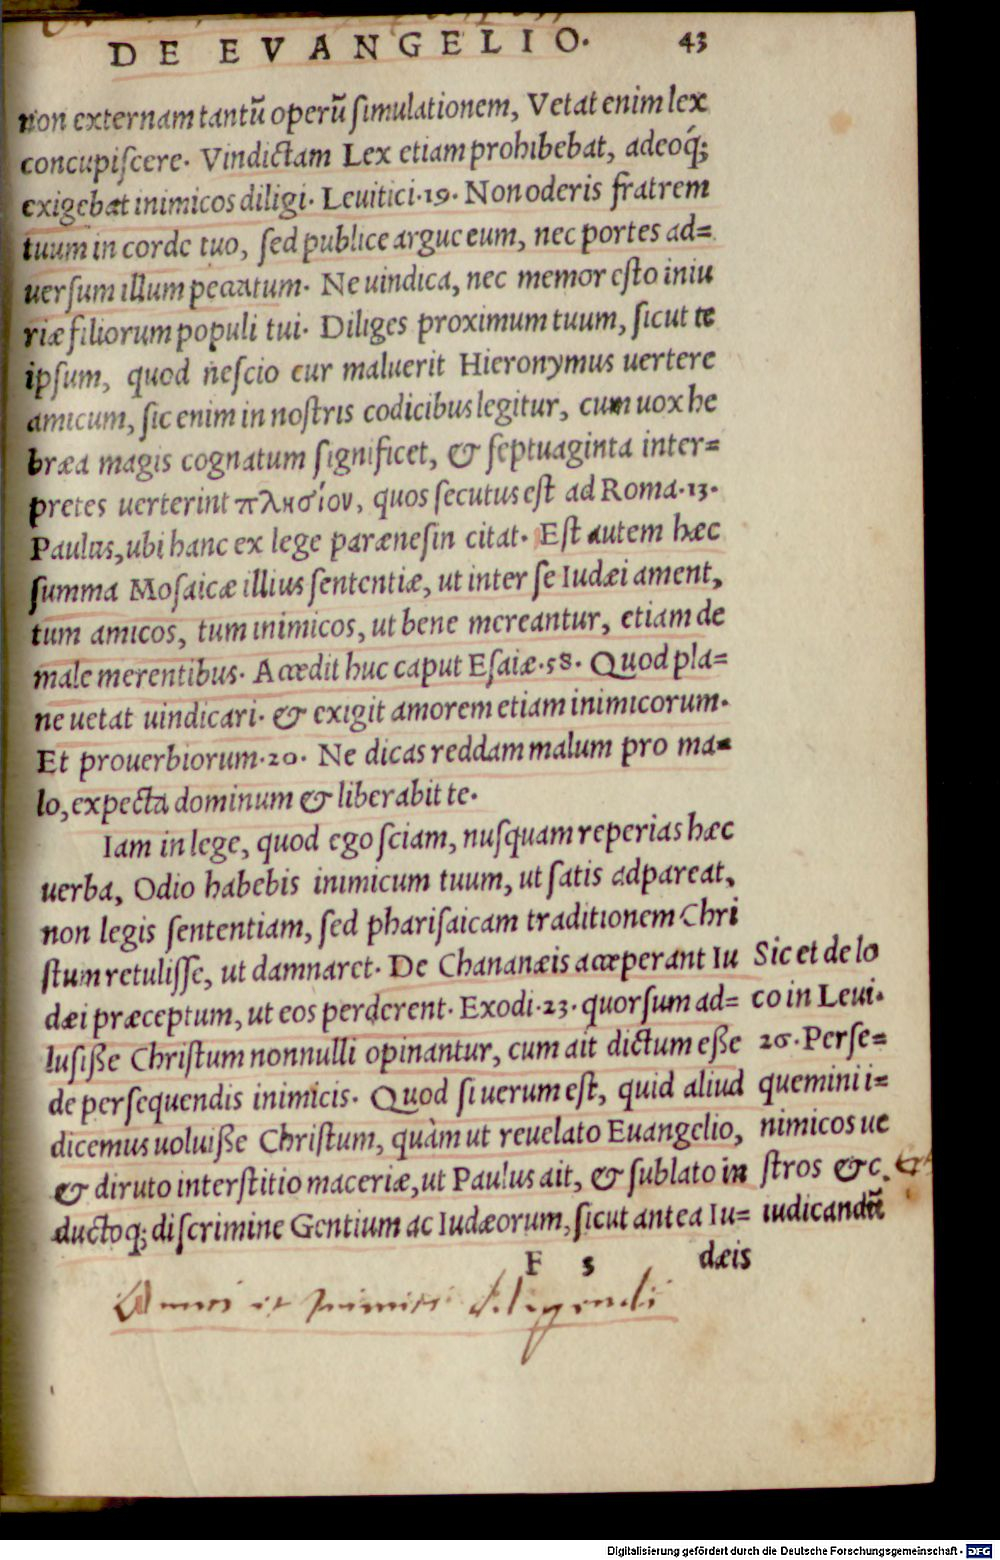 DE EVANGELIO. 43
non externam tantũ operũ simulationem, Vetat enim lex
concupiscere. Vindictam Lex etiam prohibebat, adeoq́;
exigebat inimicos diligi. Leuitici.19. Non oderis fratrem
tuum in corde tuo, sed publice argue eum, nec portes ad=
uersum illum peccatum. Ne uindica, nec memor esto iniu
riæ filiorum populi tui. Diliges proximum tuum, sicut te
ipsum, quod nescio cur maluerit Hieronymus uertere
amicum, sic enim in nostris codicibus legitur, cum uox he
bræa magis cognatum significet, & septuaginta inter=
pretes uerterint πλησίον, quos secutus est ad Roma.13.
Paulus, ubi hanc ex lege parænesin citat. Est autem hæc
summa Mosaicæ illius sententiæ, ut inter se Iudæi ament,
tum amicos, tum inimicos, ut bene mereantur, etiam de
male merentibus. Accedit huc caput Esaiæ.58. Quod pla=
ne uetat uindicari. & exigit amorem etiam inimicorum.
Et prouerbiorum.20. Ne dicas reddam malum pro ma=
lo, expecta dominum & liberabit te.
Iam in lege, quod ego sciam, nusquam reperias hæc
uerba, Odio habebis inimicum tuum, ut satis adpareat,
non legis sententiam, sed pharisaicam traditionem Chri
stum retulisse, ut damnaret. De Chananæis acceperant Iu
dæi præceptum, ut eos perderent. Exodi.23. quorsum ad=
lusisse Christum nonnulli opinantur, cum ait dictum esse
de persequendis inimicis. Quod si uerum est, quid aliud
dicemus uoluisse Christum, quàm ut reuelato Euangelio,
& diruto interstitio maceriæ, ut Paulus ait, & sublato in
ductoq; discrimine Gentium ac Iudæorum, sicut antea Iu=
Sic et de lo
co in Leui.
26. Perse=
quemini i=
nimicos ue
stros &c.
iudicandũ
F 5 dæis
Amici et Inimici diligendi
Digitalisierung gefördert durch die Deutsche Forschungsgemeinschaft - DFG